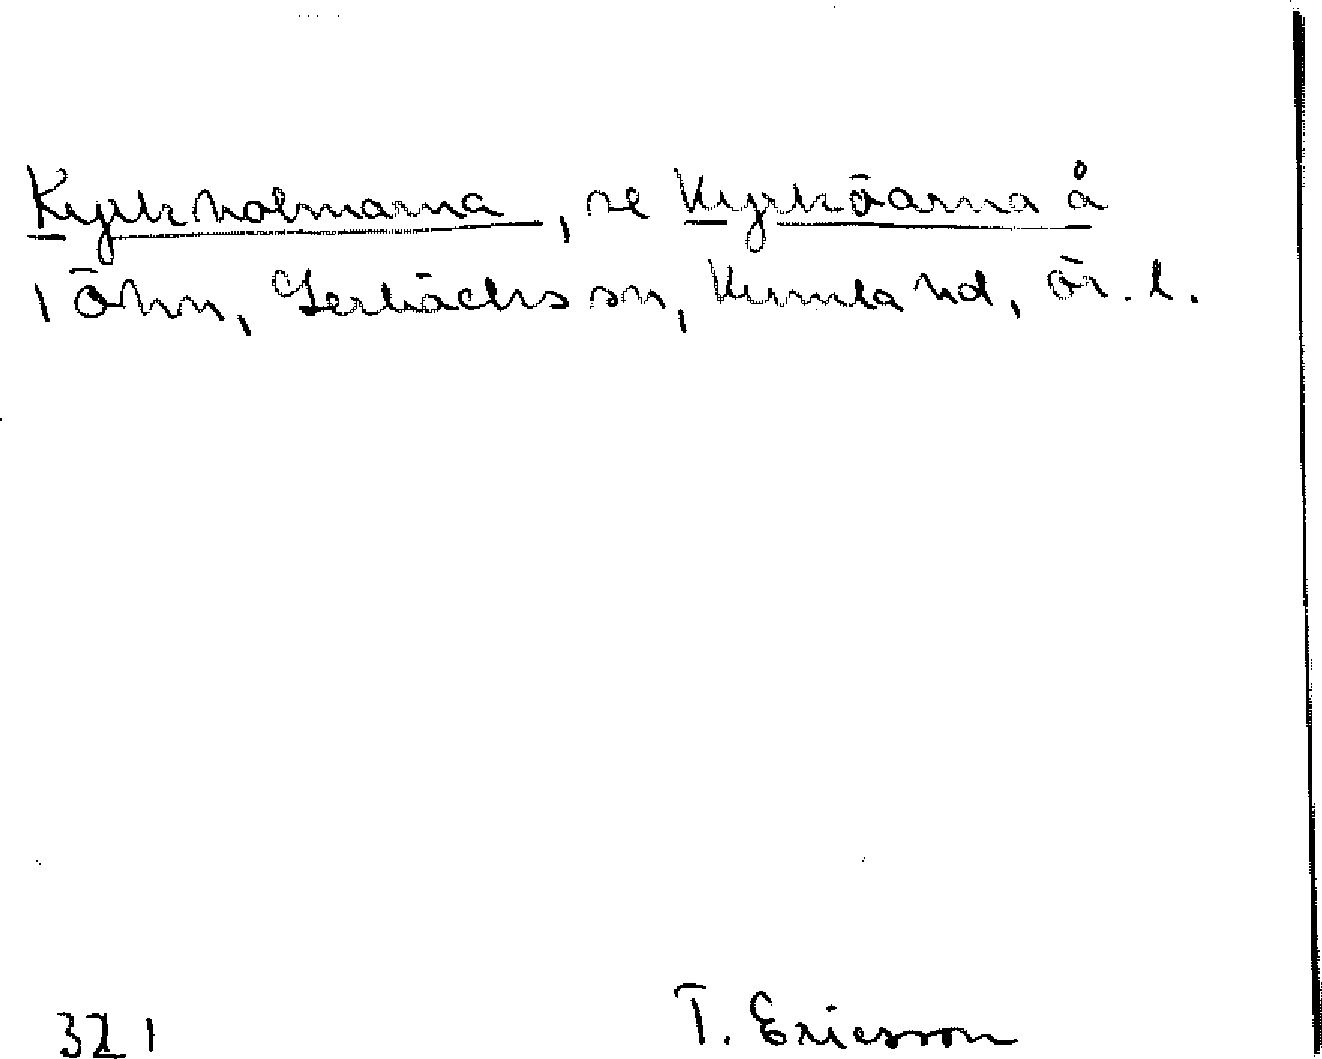 Kyrkholmarna, se Kyrköarna å
, Öhn, Lerbäcks sn, Kumla hd, Ör. l.
321 T. Ericsson